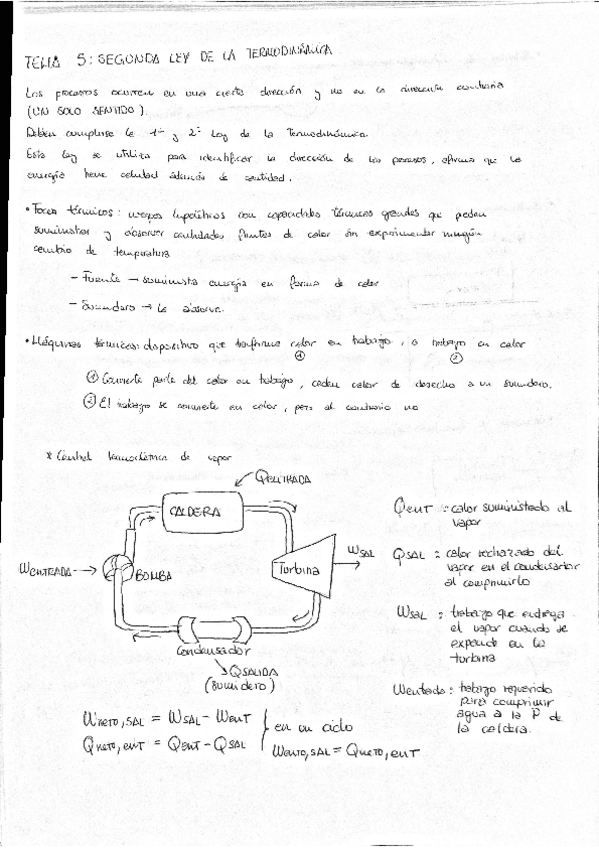 TEMA 5: SEGUNDA LEY DE LA TERMODINÁMICA
Los procesos ocurren en una cierta dirección y no en la dirección contraria
(UN SOLO SENTIDO).
Deben cumplirse la 1ª y 2ª Ley de la Termodinámica.
Esta ley se utiliza para identificar la dirección de los procesos, afirma que la
energía tiene calidad además de cantidad.
• Focos térmicos: cuerpos hipotéticos con capacidades térmicas grandes que pueden
suministrar y absorber cantidades finitas de calor sin experimentar ningún
cambio de temperatura
- Fuente → suministra energía en forma de calor
- Sumidero → la absorve.
• Máquinas térmicas: dispositivo que trasforma calor en trabajo, o trabajo en calor
① ②
① Convierte parte del calor en trabajo, ceden calor de desecho a un sumidero.
② El trabajo se convierte en calor, pero al contrario no
* Central termoeléctrica de vapor
QENTRADA
CALDERA
WENTRADA →
BOMBA
Turbina
WSAL
Condensador
QSALIDA
(sumidero)
QENT : calor suministrado al
vapor
QSAL : calor rechazado del
vapor en el condensador
al comprimirlo
WSAL : trabajo que entrega
el vapor cuando se
expande en la
turbina
Wentrada : trabajo requerido
para comprimir
agua a la P de
la caldera.
Wneto,SAL = WSAL - WENT
Qneto,ent = QENT - QSAL
en un ciclo
Wneto,SAL = Qneto,ENT